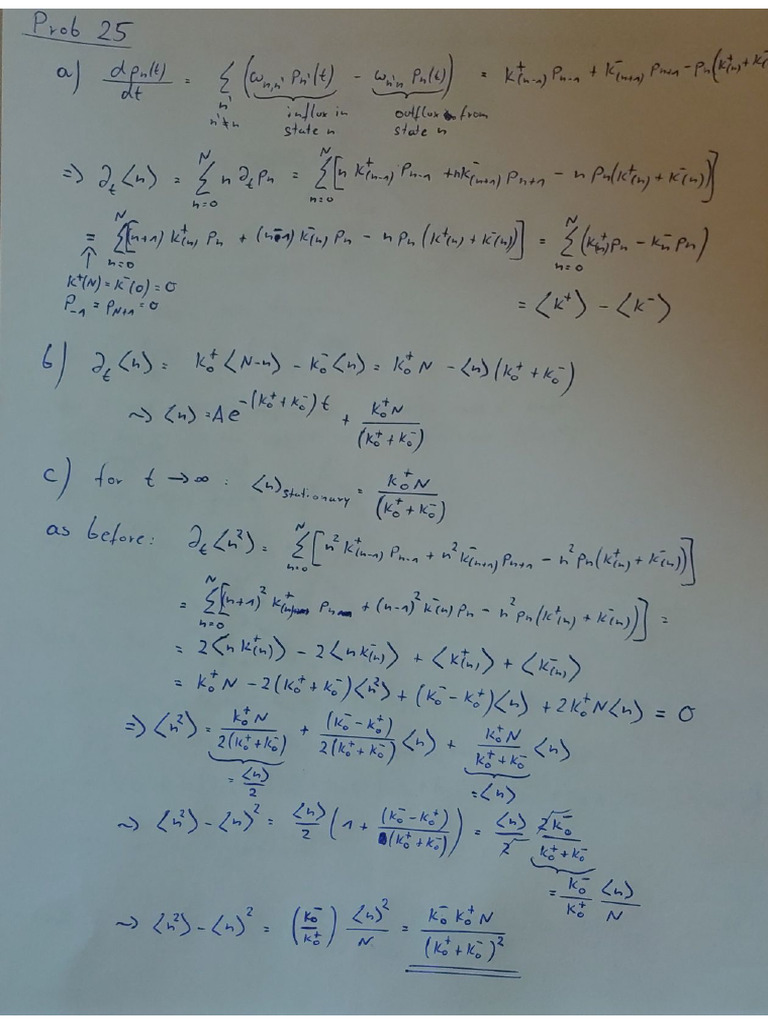 Prob 25
a) dpₙ(t)/dt = Σ_{n' n'≠n} (ω_{n,n'} p_{n'}(t) − ω_{n'n} pₙ(t)) = k⁺(n-1) p_{n-1} + k⁻(n+1) p_{n+1} − pₙ(k⁺(n) + k⁻
influx in state n
outflux from state n
⇒ ∂ₜ⟨n⟩ = Σ_{n=0}^{N} n ∂ₜpₙ = Σ_{n=0}^{N} [n k⁺(n-1) p_{n-1} + nk⁻(n+1) p_{n+1} − n pₙ(k⁺(n) + k⁻(n))]
= Σ_{n=0}^{N} [(n+1) k⁺(n) pₙ + (n-1) k⁻(n) pₙ − n pₙ (k⁺(n) + k⁻(n))] = Σ_{n=0}^{N} (k⁺(n) pₙ − k⁻ₙ pₙ)
↑
k⁺(N) = k⁻(0) = 0
p₋₁ = p_{N+1} = 0
= ⟨k⁺⟩ − ⟨k⁻⟩
b) ∂ₜ⟨n⟩ = k₀⁺ ⟨N-n⟩ − k₀⁻⟨n⟩ = k₀⁺ N − ⟨n⟩(k₀⁺ + k₀⁻)
⤳ ⟨n⟩ = A e^{−(k₀⁺+k₀⁻)t} + k₀⁺N/(k₀⁺+k₀⁻)
c) for t → ∞ : ⟨n⟩_{stationary} = k₀⁺N/(k₀⁺+k₀⁻)
as before: ∂ₜ⟨n²⟩ = Σ_{n=0}^{N} [n² k⁺(n-1) p_{n-1} + n² k⁻(n+1) p_{n+1} − n² pₙ(k⁺(n) + k⁻(n))]
= Σ_{n=0}^{N} [(n+1)² k⁺(n) pₙ + (n-1)² k⁻(n) pₙ − n² pₙ(k⁺(n) + k⁻(n))] =
= 2⟨n k⁺(n)⟩ − 2⟨n k⁻(n)⟩ + ⟨k⁺(n)⟩ + ⟨k⁻(n)⟩
= k₀⁺ N − 2(k₀⁺ + k₀⁻)⟨n²⟩ + (k₀⁻ − k₀⁺)⟨n⟩ + 2k₀⁺N⟨n⟩ = 0
⇒ ⟨n²⟩ = k₀⁺N/2(k₀⁺+k₀⁻) + (k₀⁻−k₀⁺)/2(k₀⁺+k₀⁻) ⟨n⟩ + k₀⁺N/k₀⁺+k₀⁻ ⟨n⟩
= ⟨n⟩/2
= ⟨n⟩
⤳ ⟨n²⟩ − ⟨n⟩² = ⟨n⟩/2 (1 + (k₀⁻−k₀⁺)/(k₀⁺+k₀⁻)) = ⟨n⟩/2 2k₀⁻/k₀⁺+k₀⁻
= k₀⁻/k₀⁺ ⟨n⟩/N
⤳ ⟨n²⟩ − ⟨n⟩² = (k₀⁻/k₀⁺) ⟨n⟩²/N = k₀⁻ k₀⁺ N/(k₀⁺+k₀⁻)²